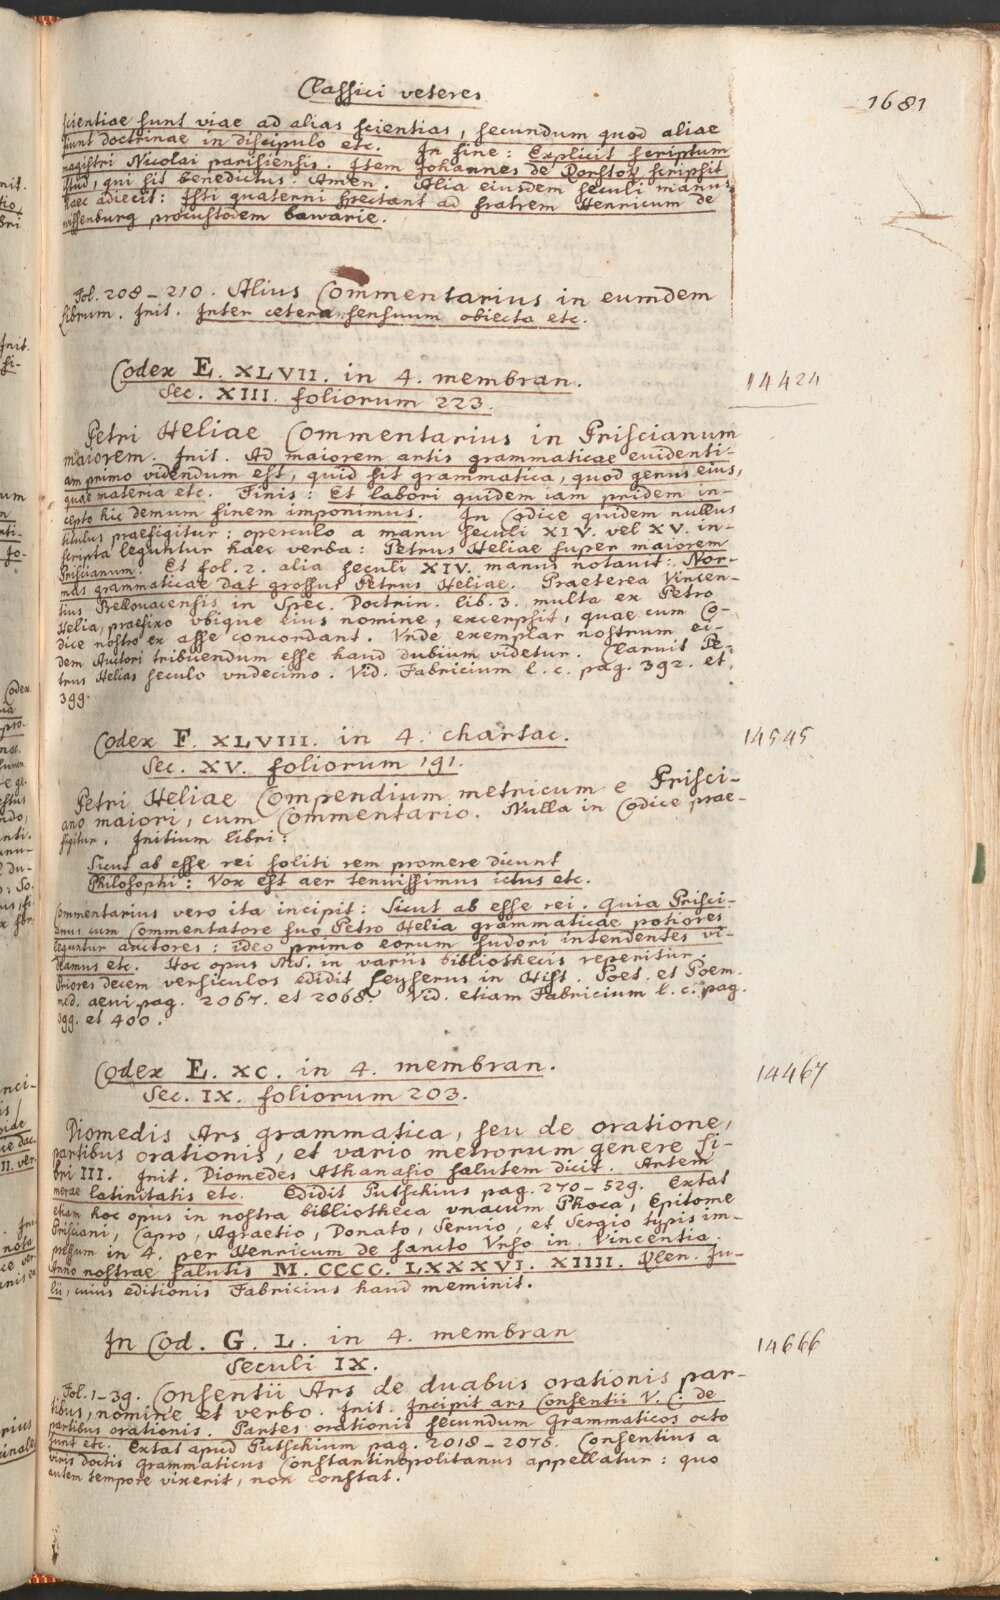 Classici veteres
1681
scientiae sunt viae ad alias scientias, secundum quod aliae
sunt doctrinae in discipulo etc. In fine: Explicit scriptum
magistri Nicolai parisiensis. Item Johannes de scripsit
istud, qui sit benedictus. Amen. Alia eiusdem seculi manus
haec adiecit: Isti quaterni spectant ad fratrem Henricum de
procustodem bawarie.
Fol. 208-210. Alius Commentarius in eumdem
librum. Init. Inter cetera sensuum obiecta etc.
Codex E. XLVII. in 4. membran.
14424
Sec. XIII. foliorum 223.
Petri Heliae Commentarius in Priscianum
maiorem. Init. Ad maiorem artis grammaticae euidenti-
am primo videndum est, quid sit grammatica, quod genus eius,
quae materia etc. Finis: Et labori quidem iam pridem in-
cepto hic demum finem imponimus. In Codice quidem nullus
titulus praefigitur: operculo a manu seculi XIV. vel XV. in-
scripta leguntur haec verba: Petrus Heliae super maiorem
Priscianum. Et fol. 2. alia seculi XIV. manus notauit: Nor-
mas grammaticae dat grossus Petrus Heliae. Praeterea Vincen-
tius Bellouacensis in Spec. Doctrin. lib. 3. multa ex Petro
Helia, praefixo vbique eius nomine, excerpsit, quae cum Co-
dice nostro ex asse concordant. Vnde exemplar nostrum ei-
dem Auctori tribuendum esse haud dubium videtur. Claruit Pe-
trus Helias seculo vndecimo. Vid. Fabricium l. c. pag. 392. et
399.
Codex F. XLVIII. in 4. chartac.
14545
Sec. XV. foliorum 191.
Petri Heliae Compendium metricum e Prisci-
ano maiori, cum Commentario. Nulla in Codice prae-
figitur. Initium libri:
Sicut ab esse rei soliti rem promere dicunt
Philosophi: Vox est aer tenuissimus ictus etc.
Commentarius vero ita incipit: Sicut ab esse rei. Quia Prisci-
anus cum Commentatore suo Petro Helia grammaticae potiores
leguntur auctores: ideo primo eorum sudori intendentes vi-
deamus etc. Hoc opus MS. in variis bibliothecis reperitur.
Priores decem versiculos edidit Leyserus in Hist. Poet. et Poem.
med. aeui pag. 2067. et 2068. Vid. etiam Fabricium l. c. pag.
399. et 400.
Codex E. XC. in 4. membran.
14467
Sec. IX. foliorum 203.
Diomedis Ars grammatica, seu de oratione,
partibus orationis, et vario metrorum genere li-
bri III. Init. Diomedes Athanasio salutem dicit. Artem
merae latinitatis etc. Edidit Putschius pag. 270-529. Extat
etiam hoc opus in nostra bibliotheca vnacum Phoca, Epitome
Prisciani, Capro, Agraetio, Donato, Seruio, et Sergio typis im-
pressum in 4. per Henricum de sancto Vrso in Vincentia
Anno nostrae salutis M. CCCC. LXXXVI. XIIII. Klen. Ju-
lii, cuius editionis Fabricius haud meminit.
In Cod. G. L. in 4. membran
14666
Seculi IX.
Fol. 1-39. Consentii Ars de duabus orationis par-
tibus, nomine et verbo. Init. Incipit ars Consentii V. C. de
partibus orationis. Partes orationis secundum Grammaticos octo
sunt etc. Extat apud Putschium pag. 2018-2075. Consentius a
viris doctis Grammaticus Constantinopolitanus appellatur: quo
autem tempore vixerit, non constat.